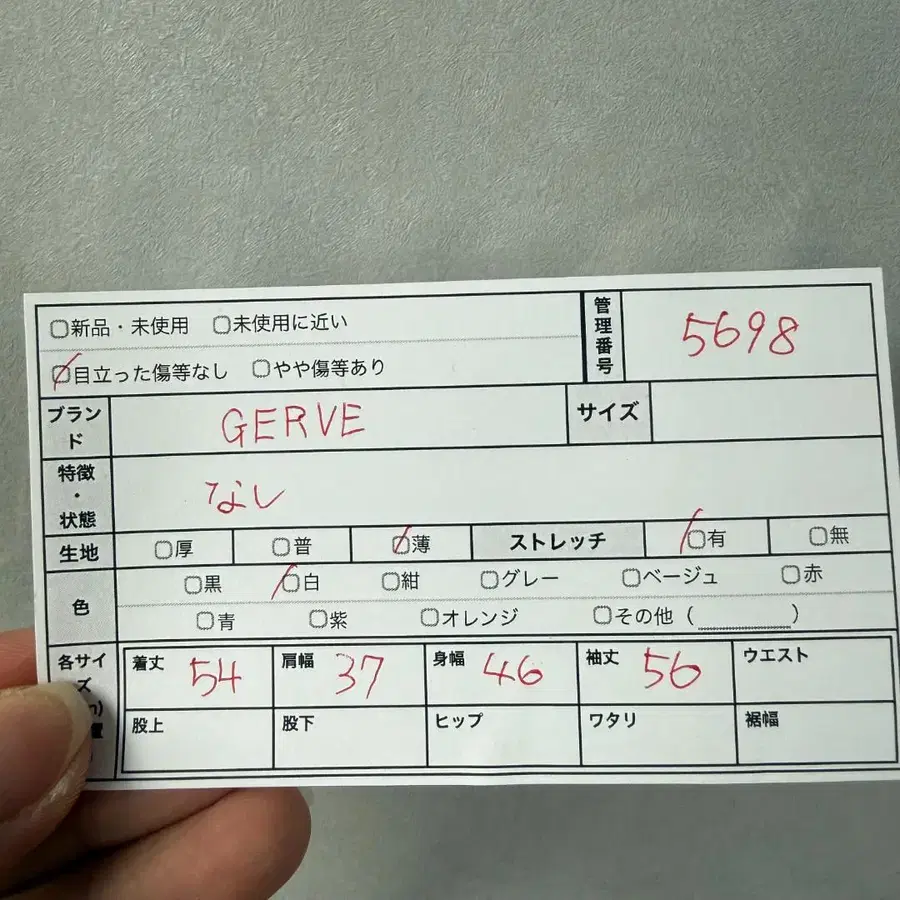 ▢新品・未使用 ▢未使用に近い
▢目立った傷等なし ▢やや傷等あり
管理番号
5698
ブランド
GERVE
サイズ
特徴・状態
なし
生地
▢厚 ▢普 ▢薄
ストレッチ
▢有 ▢無
色
▢黒 ▢白 ▢紺 ▢グレー ▢ベージュ ▢赤
▢青 ▢紫 ▢オレンジ ▢その他（＿＿＿＿）
各サイズ
着丈 54 肩幅 37 身幅 46 袖丈 56 ウエスト
股上 股下 ヒップ ワタリ 裾幅